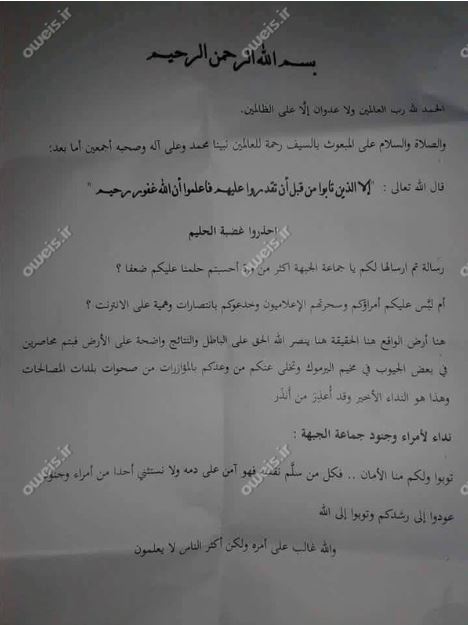 بسم الله الرحمن الرحيم
الحمد لله رب العالمين ولا عدوان إلّا على الظالمين.
والصلاة والسلام على المبعوث بالسيف رحمة للعالمين نبينا محمد وعلى آله وصحبه أجمعين أما بعد:
قال الله تعالى : "إلا الذين تابوا من قبل أن تقدروا عليهم فاعلموا أن الله غفور رحيم "
احذروا غضبة الحليم
رسالة تم ارسالها لكم يا جماعة الجبهة اكثر من مرة أحسبتم حلمنا عليكم ضعفا ؟
أم لبّس عليكم أمراؤكم وسحرتهم الإعلاميون وخدعوكم بانتصارات وهمية على الانترنت ؟
هنا أرض الواقع هنا الحقيقة هنا ينصر الله الحق على الباطل والنتائج واضحة على الأرض فبتم محاصرين
في بعض الجيوب في مخيم اليرموك وتخلى عنكم من وعدكم بالمؤازرات من صحوات بلدات المصالحات
وهذا هو النداء الأخير وقد أُعذِرَ من أَنذَر
نداء لأمراء وجنود جماعة الجبهة :
توبوا ولكم منا الأمان .. فكل من سلَّم نفسه فهو آمن على دمه ولا نستثني أحدا من أمراء وجنود
عودوا إلى رشدكم وتوبوا إلى الله
والله غالب على أمره ولكن أكثر الناس لا يعلمون
oweis.ir
oweis.ir
oweis.ir
oweis.ir
oweis.ir
oweis.ir